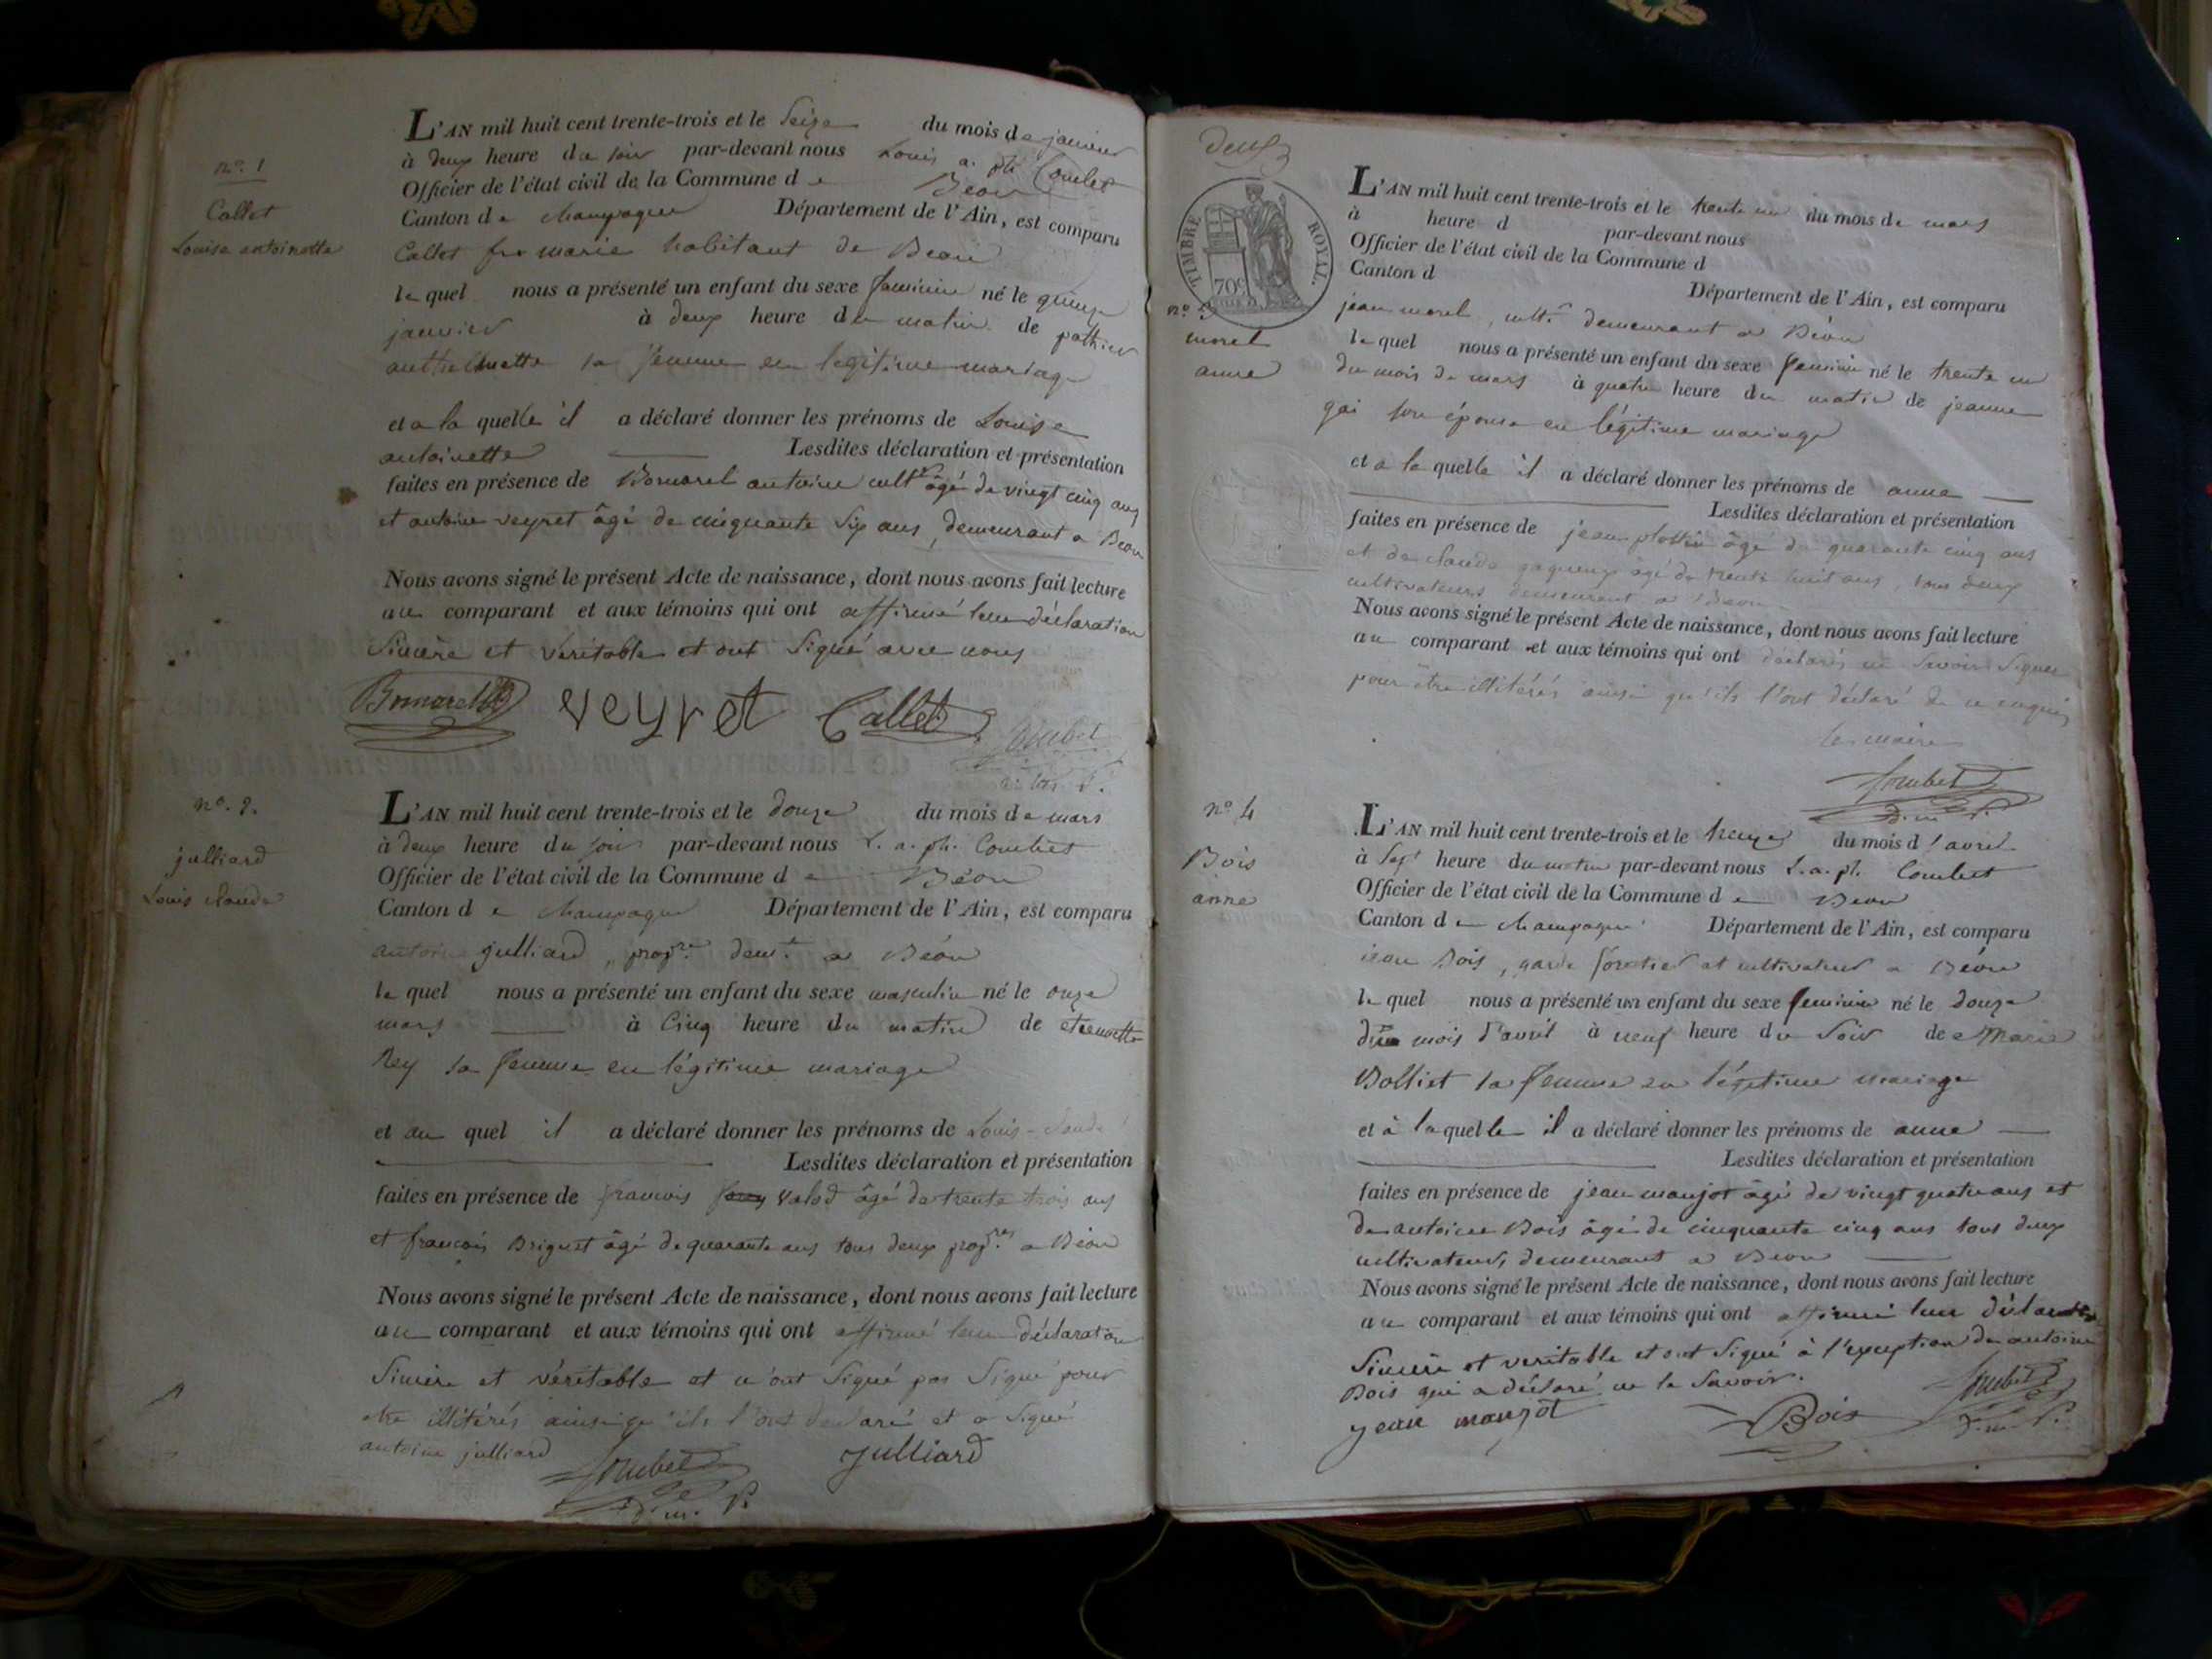 n°. 1
Callet
Louise antoinette
L'AN mil huit cent trente-trois et le Seize du mois de janvier
à deux heure du soir par-devant nous Louis a. ph. Combet
Officier de l'état civil de la Commune de Béon
Canton de Champagne Département de l'Ain, est comparu
Callet marie habitant de Béon
lequel nous a présenté un enfant du sexe feminin né le quinze
janvier à deux heure du matin de
sa femme en legitime mariage
et a la quelle il a déclaré donner les prénoms de Louise
antoinette Lesdites déclaration et présentation
faites en présence de Bonnarel antoine cultr âgé de vingt cinq ans
et antoine veyret âgé de cinquante six ans, demeurant a Béon
Nous avons signé le présent Acte de naissance, dont nous avons fait lecture
au comparant et aux témoins qui ont affirmé leur déclaration
Sincère et véritable et ont Signé avec nous
veyret Callet Combet
n°. 2.
julliard
Louis claude
L'AN mil huit cent trente-trois et le douze du mois de mars
à deux heure du soir par-devant nous L. a. ph. Combet
Officier de l'état civil de la Commune de Béon
Canton de Champagne Département de l'Ain, est comparu
antoine julliard, propre demt a Béon
lequel nous a présenté un enfant du sexe masculin né le onze
mars à Cinq heure du matin de etiennette
Rey sa femme en légitime mariage
et au quel il a déclaré donner les prénoms de Louis-claude
Lesdites déclaration et présentation
faites en présence de francois valod âgé de trente trois ans
et francois Briguet âgé de quarante ans tous deux propres a Béon
Nous avons signé le présent Acte de naissance, dont nous avons fait lecture
au comparant et aux témoins qui ont affirmé leur déclaration
Sincère et véritable et n'ont Signé pas Signé pour
etre illitérés ainsi qu'ils l'ont declaré et a Signé
antoine julliard Combet julliard
deux
TIMBRE ROYAL.
70c
n° 3
morel
anne
L'AN mil huit cent trente-trois et le trente un du mois de mars
à heure d par-devant nous
Officier de l'état civil de la Commune d
Canton d Département de l'Ain, est comparu
jean morel, cultr demeurant a Béon
lequel nous a présenté un enfant du sexe feminin né le trente un
du mois de mars à quatre heure du matin de jeanne
gai son épouse en légitime mariage
et a la quelle il a déclaré donner les prénoms de anne
Lesdites déclaration et présentation
faites en présence de jean âgé de quarante cinq ans
et de claude âgé de trente huit ans, tous deux
cultivateurs demeurant a Béon
Nous avons signé le présent Acte de naissance, dont nous avons fait lecture
au comparant et aux témoins qui ont déclarés ne Savoir Signer
pour être illitérés ainsi qu'ils l'ont déclaré de ce enquis
le maire
Combet
n° 4
Bois
anne
L'AN mil huit cent trente-trois et le treize du mois d'avril
à Sept heure du matin par-devant nous L. a. ph. Combet
Officier de l'état civil de la Commune de Béon
Canton de Champagne Département de l'Ain, est comparu
jean Bois, garde forestier et cultivateur a Béon
lequel nous a présenté un enfant du sexe feminin né le douze
du mois d'avril à neuf heure du Soir de Marie
Bolliet sa femme en légitime mariage
et à laquelle il a déclaré donner les prénoms de anne
Lesdites déclaration et présentation
faites en présence de jean manjot âgé de vingt quatre ans et
de antoine Bois âgé de cinquante cinq ans tous deux
cultivateurs, demeurant a Béon
Nous avons signé le présent Acte de naissance, dont nous avons fait lecture
au comparant et aux témoins qui ont affirmé leur déclaration
Sincère et veritable et ont Signé à l'exception de antoine
Bois qui a déclaré ne le Savoir.
jean manjot Bois Combet